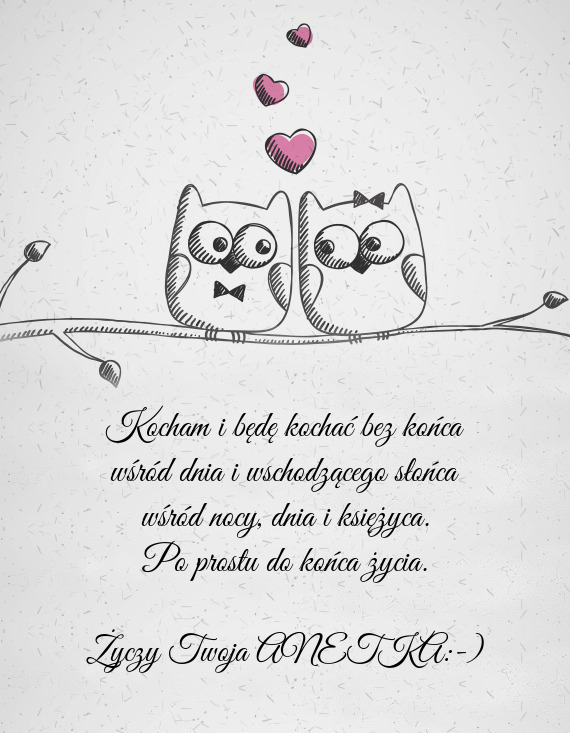 Kocham i będę kochać bez końca
wśród dnia i wschodzącego słońca
wśród nocy, dnia i księżyca.
Po prostu do końca życia.
Życzy Twoja ANETKA:-)